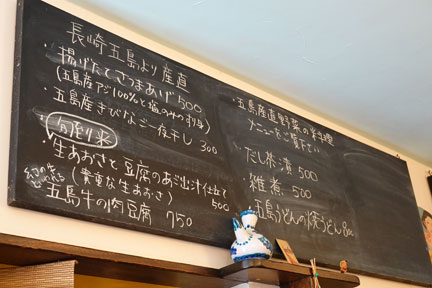 長崎五島より産直
・揚げたてさつまあげ 500
(五島産アジ100%と塩のみのすり身)
・五島産きびなご一夜干し 300
・生あおさと豆腐のあご出汁仕立て
(貴重な生あおさ) 500
五島牛の肉豆腐 750
・五島産直野菜の
メニューをご覧下さい
・だし茶漬 500
・雑煮 500
(五島)うどんの焼うどん 800